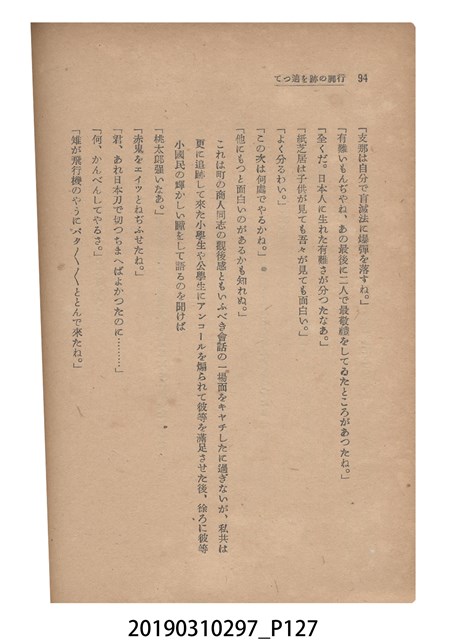 行脚の跡を追つて 94
「支那は自分で盲滅法に爆彈を落すね。」
「有難いもんぢやね、あの最後に二人で最敬禮をしてゐたところがあつたね。」
「全くだ。日本人に生れた有難さが分つたなあ。」
「紙芝居は子供が見ても吾々が見ても面白い。」
「よく分るわい。」
「この次は何處でやるかね。」
「他にもつと面白いのがあるかも知れぬ。」
これは町の商人同志の觀後感ともいふべき會話の一場面をキヤチしたに過ぎないが、私共は
更に追跡して來た小學生や公學生にアンコールを煽られて彼等を滿足させた後、徐ろに彼等
小國民の輝かしい瞳をして語るのを聞けば
「桃太郎强いなあ。」
「赤鬼をエイツとねぢふせたね。」
「君、あれ日本刀で切つちまへばよかつたのに………」
「何、かんべんしてやるさ。」
「雉が飛行機のやうにバタ〱〱ととんで來たね。」
20190310297_P127